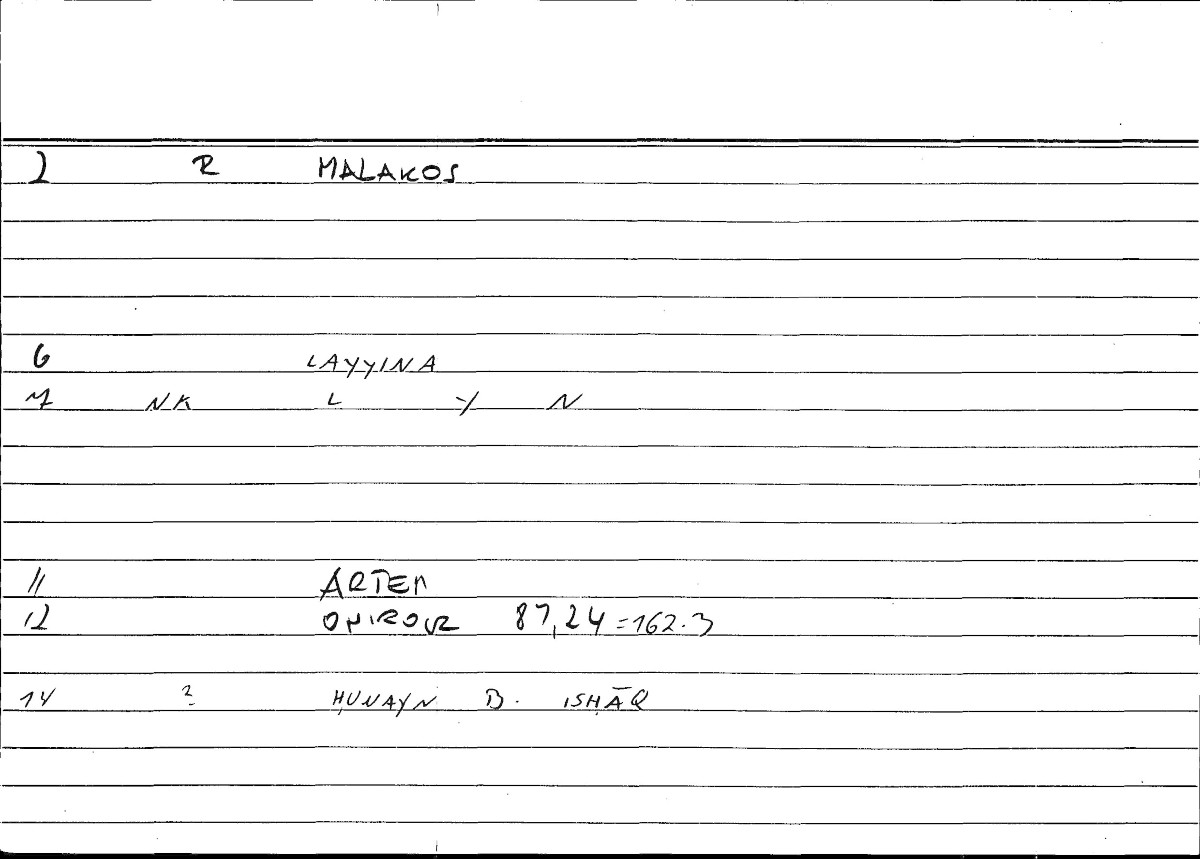 1 R MALAKOS
6 LAYYINA
7 NK L Y N
11 ARTEM
12 ONIROCR 87,24 = 162.3
14 2 ḤUNAYN B. ISḤĀQ